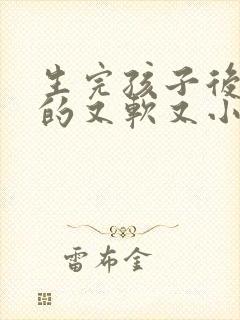 生完孩子後
的又軟又小
雷布金